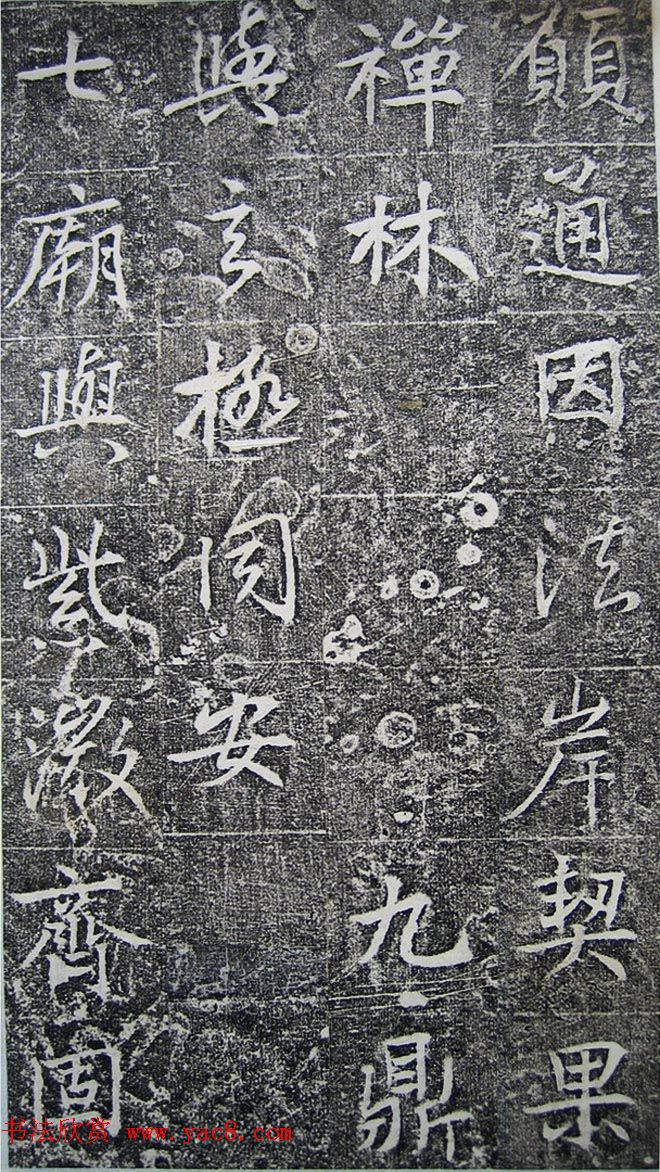 願通因法岸契果
禪林 九鼎
與玄極同安
七廟與紫微齊固
书法欣赏 www.yac8.com